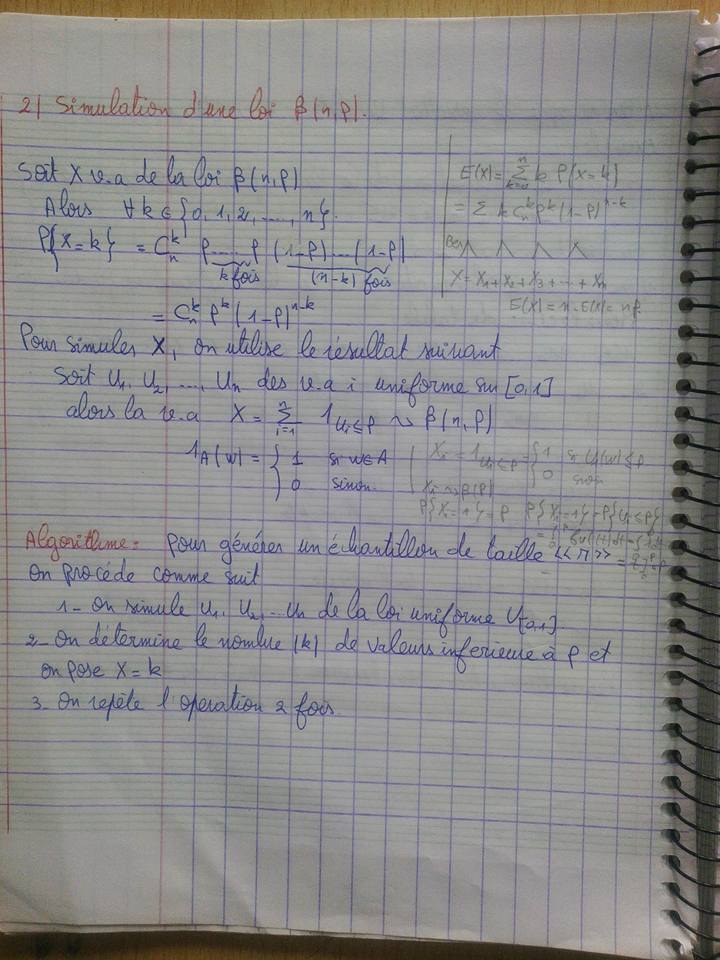 2) Simulation d'une loi β(n,p).
Soit X v.a de la loi β(n,p)
Alors ∀k ∈ {0, 1, 2, ...., n}.
P{X=k} = C_n^k p.....p (1-p)...(1-p)
k fois (n-k) fois
= C_n^k p^k (1-p)^{n-k}
E(X) = Σ_{k=0}^n k P(X=k)
= Σ k C_n^k p^k (1-p)^{n-k}
Ber
X = X_1 + X_2 + X_3 + ... + X_n
E(X) = n.E(X) = np.
Pour simuler X, on utilise le résultat suivant
soit U_1, U_2, ..., U_n des v.a i uniforme sur [0,1]
alors la v.a X = Σ_{i=1}^n 1_{U_i≤p} ~ β(n,p)
1_A(w) = { 1 si w∈A
0 sinon.
X_i = 1_{U_i≤p} = { 1 si U_i(w)≤p
0 sinon
X_i ~ β(p)
P{X_i=1} = p P{X_i=1} = P{U_i≤p}
Algorithme: pour générer un échantillon de taille <<n>>
on procéde comme suit
1- on simule U_1, U_2, ... U_n de la loi uniforme U_[0,1].
2- On détermine le nombre (k) de valeurs inferieure à p et
on pose X=k
3- On repète l'operation 2 fois.